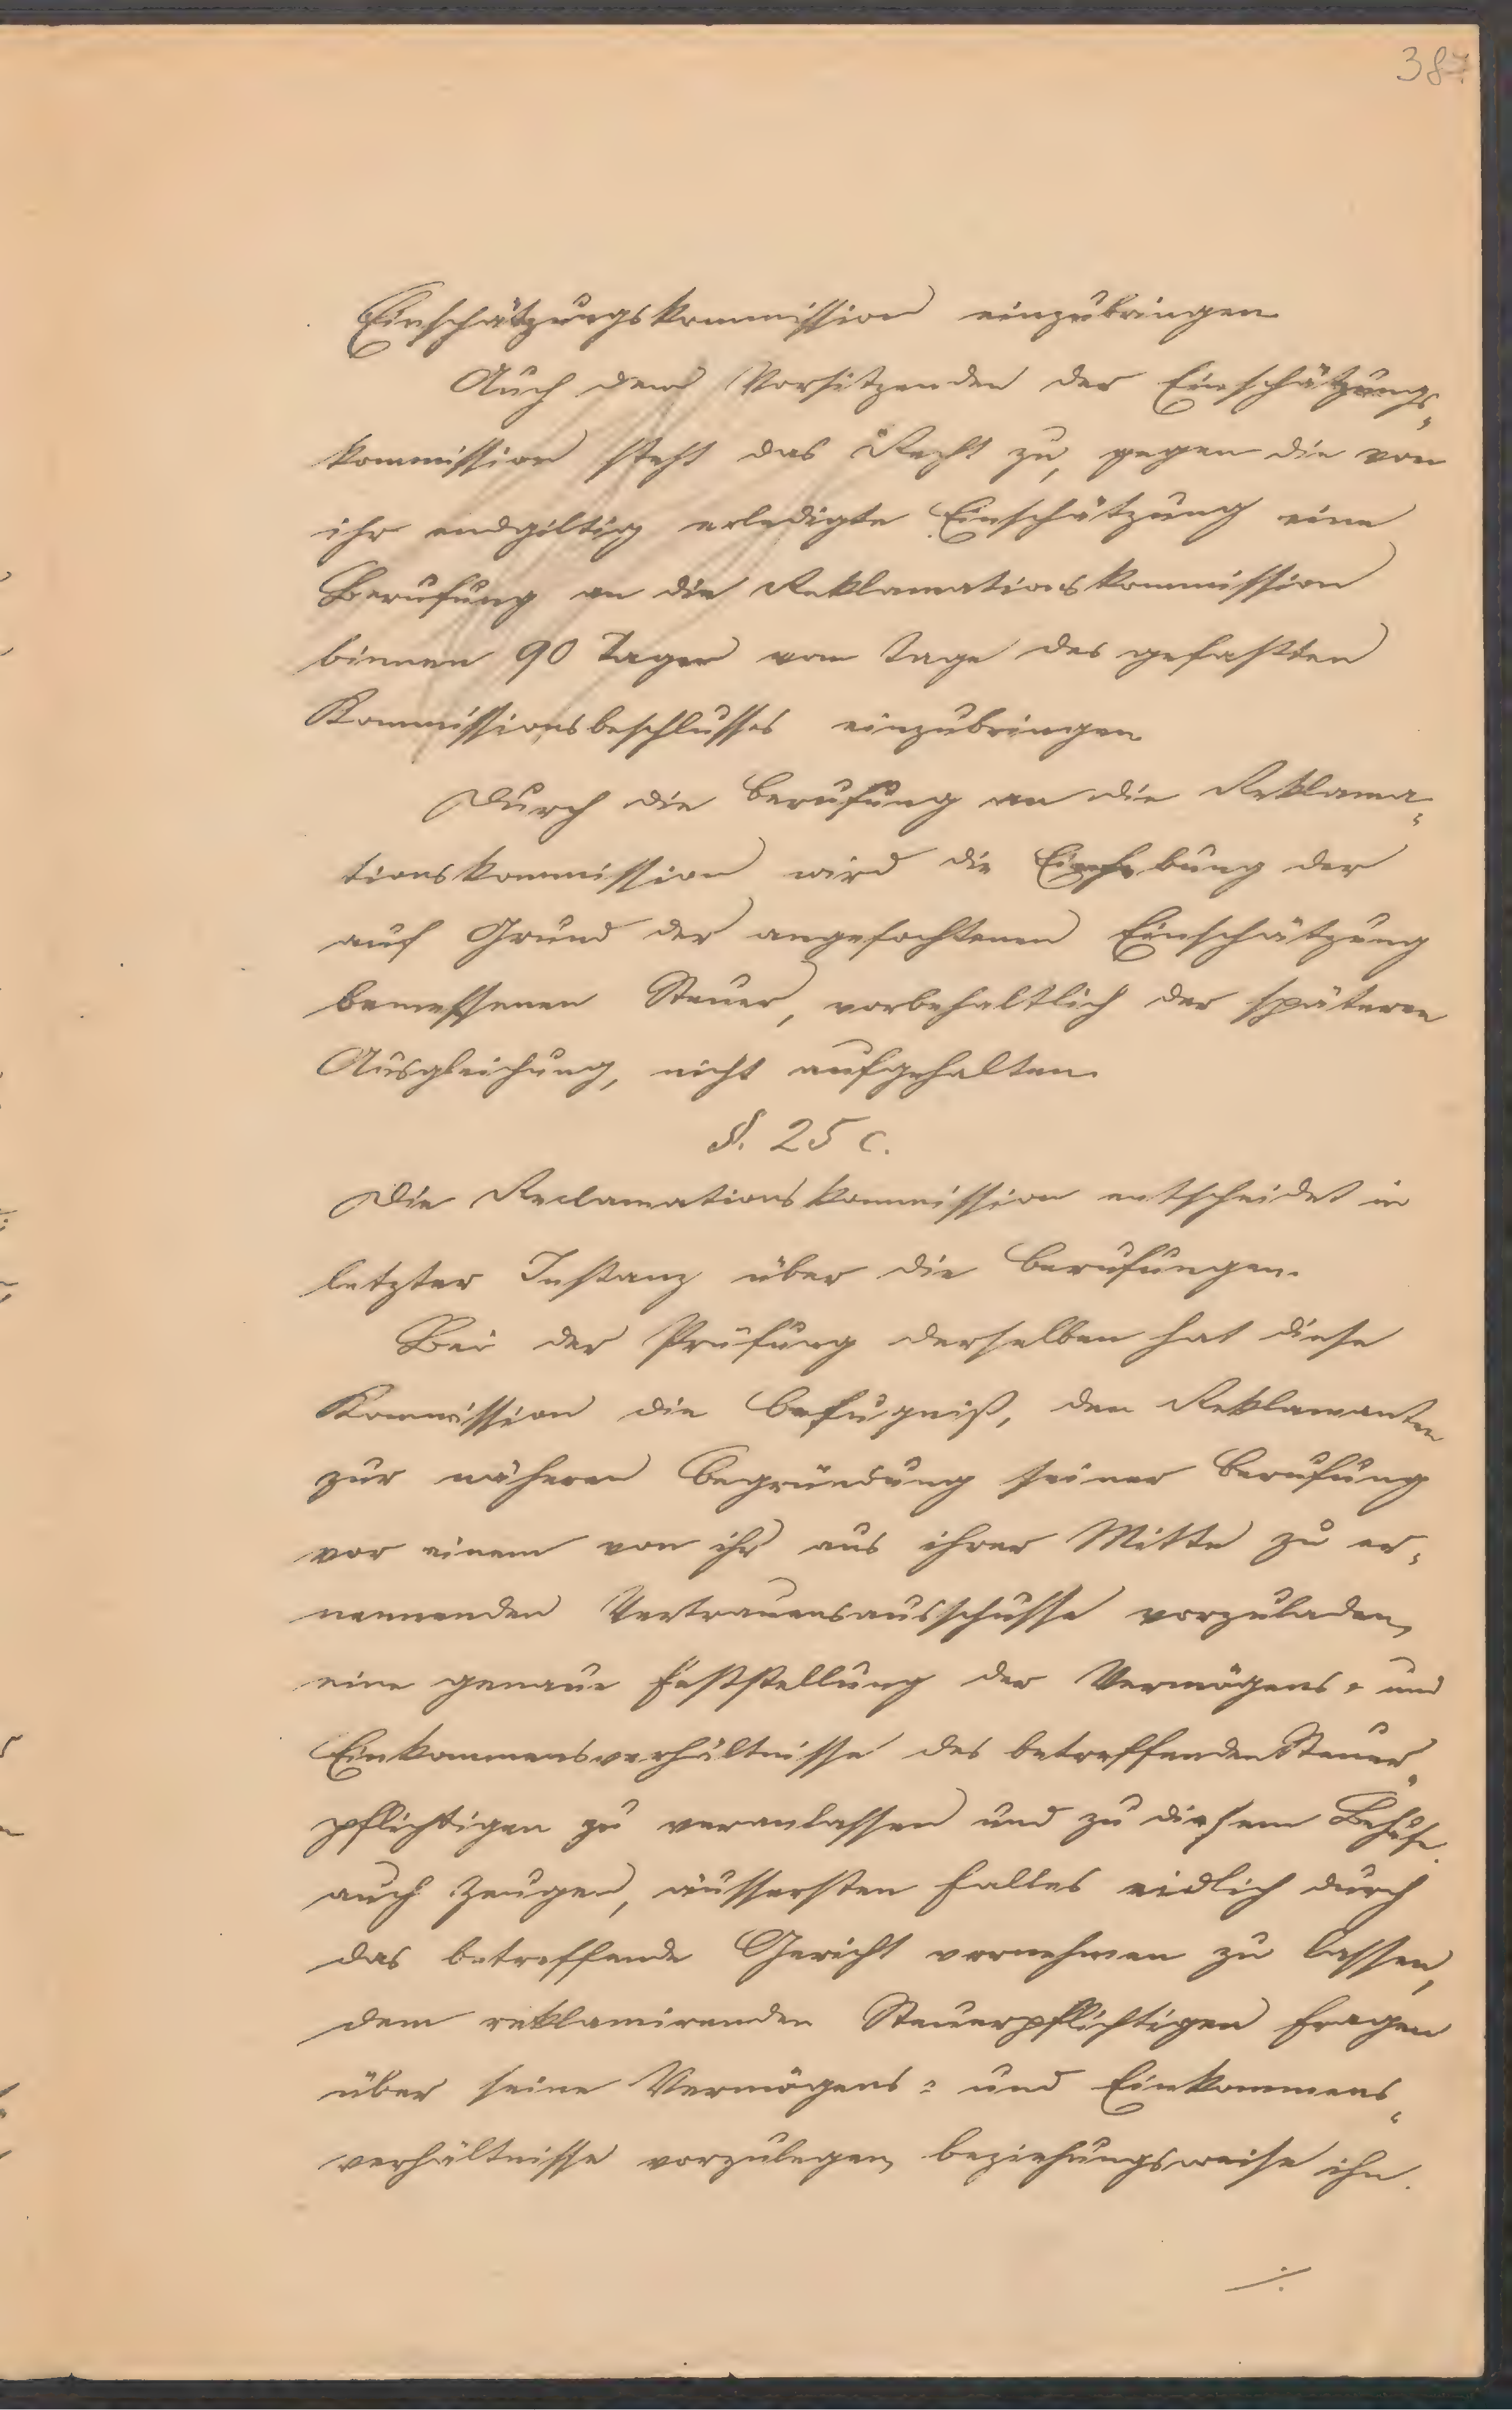 387
Einschätzungskommission einzubringen
Auch dem Vorsitzenden der Einschätzungs-
kommission steht das Recht zu, gegen die von
ihr endgiltig erledigte Einschätzung eine
Berufung an die Reklamationskommission
binnen 90 Tagen vom Tage des gefaßten
Kommissionsbeschlusses einzubringen
Durch die Berufung an die Reklama-
tionskommission wird die Einhebung der
auf Grund der angefochtenen Einschätzung
bemessenen Steuer, vorbehaltlich der späteren
Ausgleichung, nicht aufgehalten.
§. 25 c.
Die Reclamationskommission entscheidet in
letzter Instanz über die Berufungen.
Bei der Prüfung derselben hat diese
Kommission die Befugniß, den Reklamanten
zur näheren Begründung seiner Berufung
vor einem von ihr aus ihrer Mitte zu er-
nennenden Vertrauensausschusse vorzuladen,
eine genaue Feststellung der Vermögens- und
Einkommensverhältnisse des betreffenden Steuer-
pflichtigen zu veranlassen und zu diesem Behufe
auch Zeugen, äussersten Falles eidlich durch
das betreffende Gericht vernehmen zu lassen,
dem reklamirenden Steuerpflichtigen Fragen
über seine Vermögens- und Einkommens-
verhältnisse vorzulegen, beziehungsweise ihn
./.